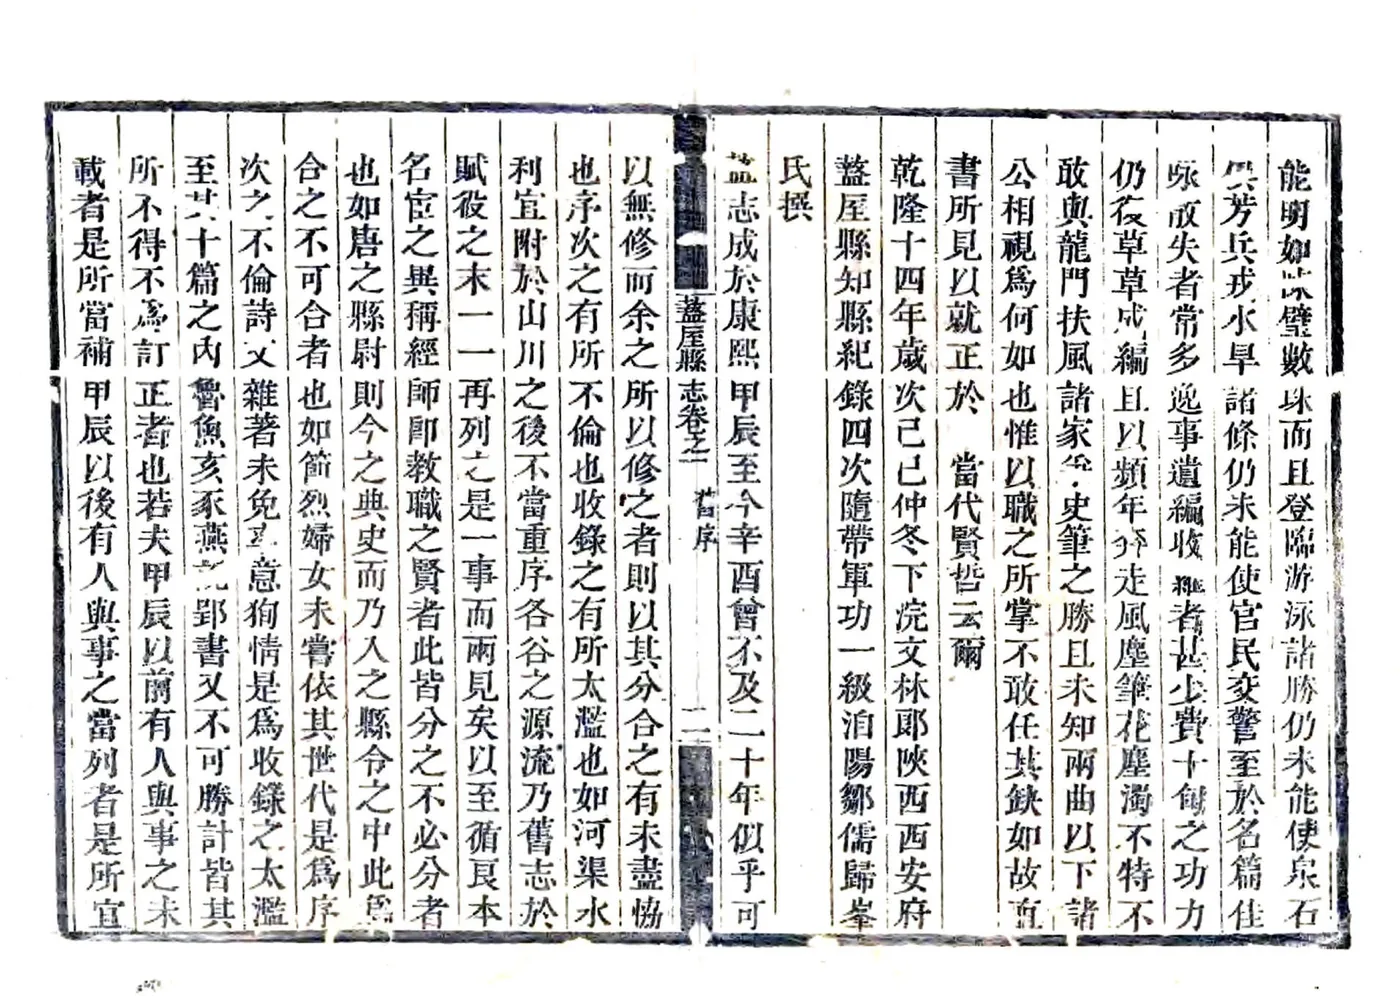 能明如 璧數 珠而且登臨游泳諸勝仍未能使泉石
供芳兵戎水旱諸條仍未能使官民交警至於名篇佳
咏散失者常多逸事遺編收 者甚少費十旬之功力
仍復草草成編且以頻年奔走風塵筆花塵濁不特不
敢與龍門扶風諸家 史筆之勝且未知兩曲以下諸
公相視爲何如也惟以職之所掌不敢任其缺如故直
書所見以就正於 當代賢哲云爾
乾隆十四年歲次己巳仲冬下浣文林郎陝西西安府
盩厔縣知縣紀錄四次隨帶軍功一級洎陽鄒儒歸峯
氏撰
盩志成於康熙甲辰至今辛酉曾不及二十年似乎可
盩厔縣志卷之一 舊序 二
以無修而余之所以修之者則以其分合之有未盡協
也序次之有所不倫也收錄之有所太濫也如河渠水
利宜附於山川之後不當重序各谷之源流乃舊志於
賦役之末一一再列之是一事而兩見矣以至循良本
名宦之異稱經師卽教職之賢者此皆分之不必分者
也如唐之縣尉則今之典史而乃入之縣令之中此爲
合之不可合者也如節烈婦女未嘗依其世代是爲序
次之不倫詩文雜著未免 意狥情是爲收錄之太濫
至其十篇之內魯魚亥豕燕 郢書又不可勝計皆其
所不得不爲訂正者也若夫甲辰以前有人與事之未
載者是所當補甲辰以後有人與事之當列者是所宜